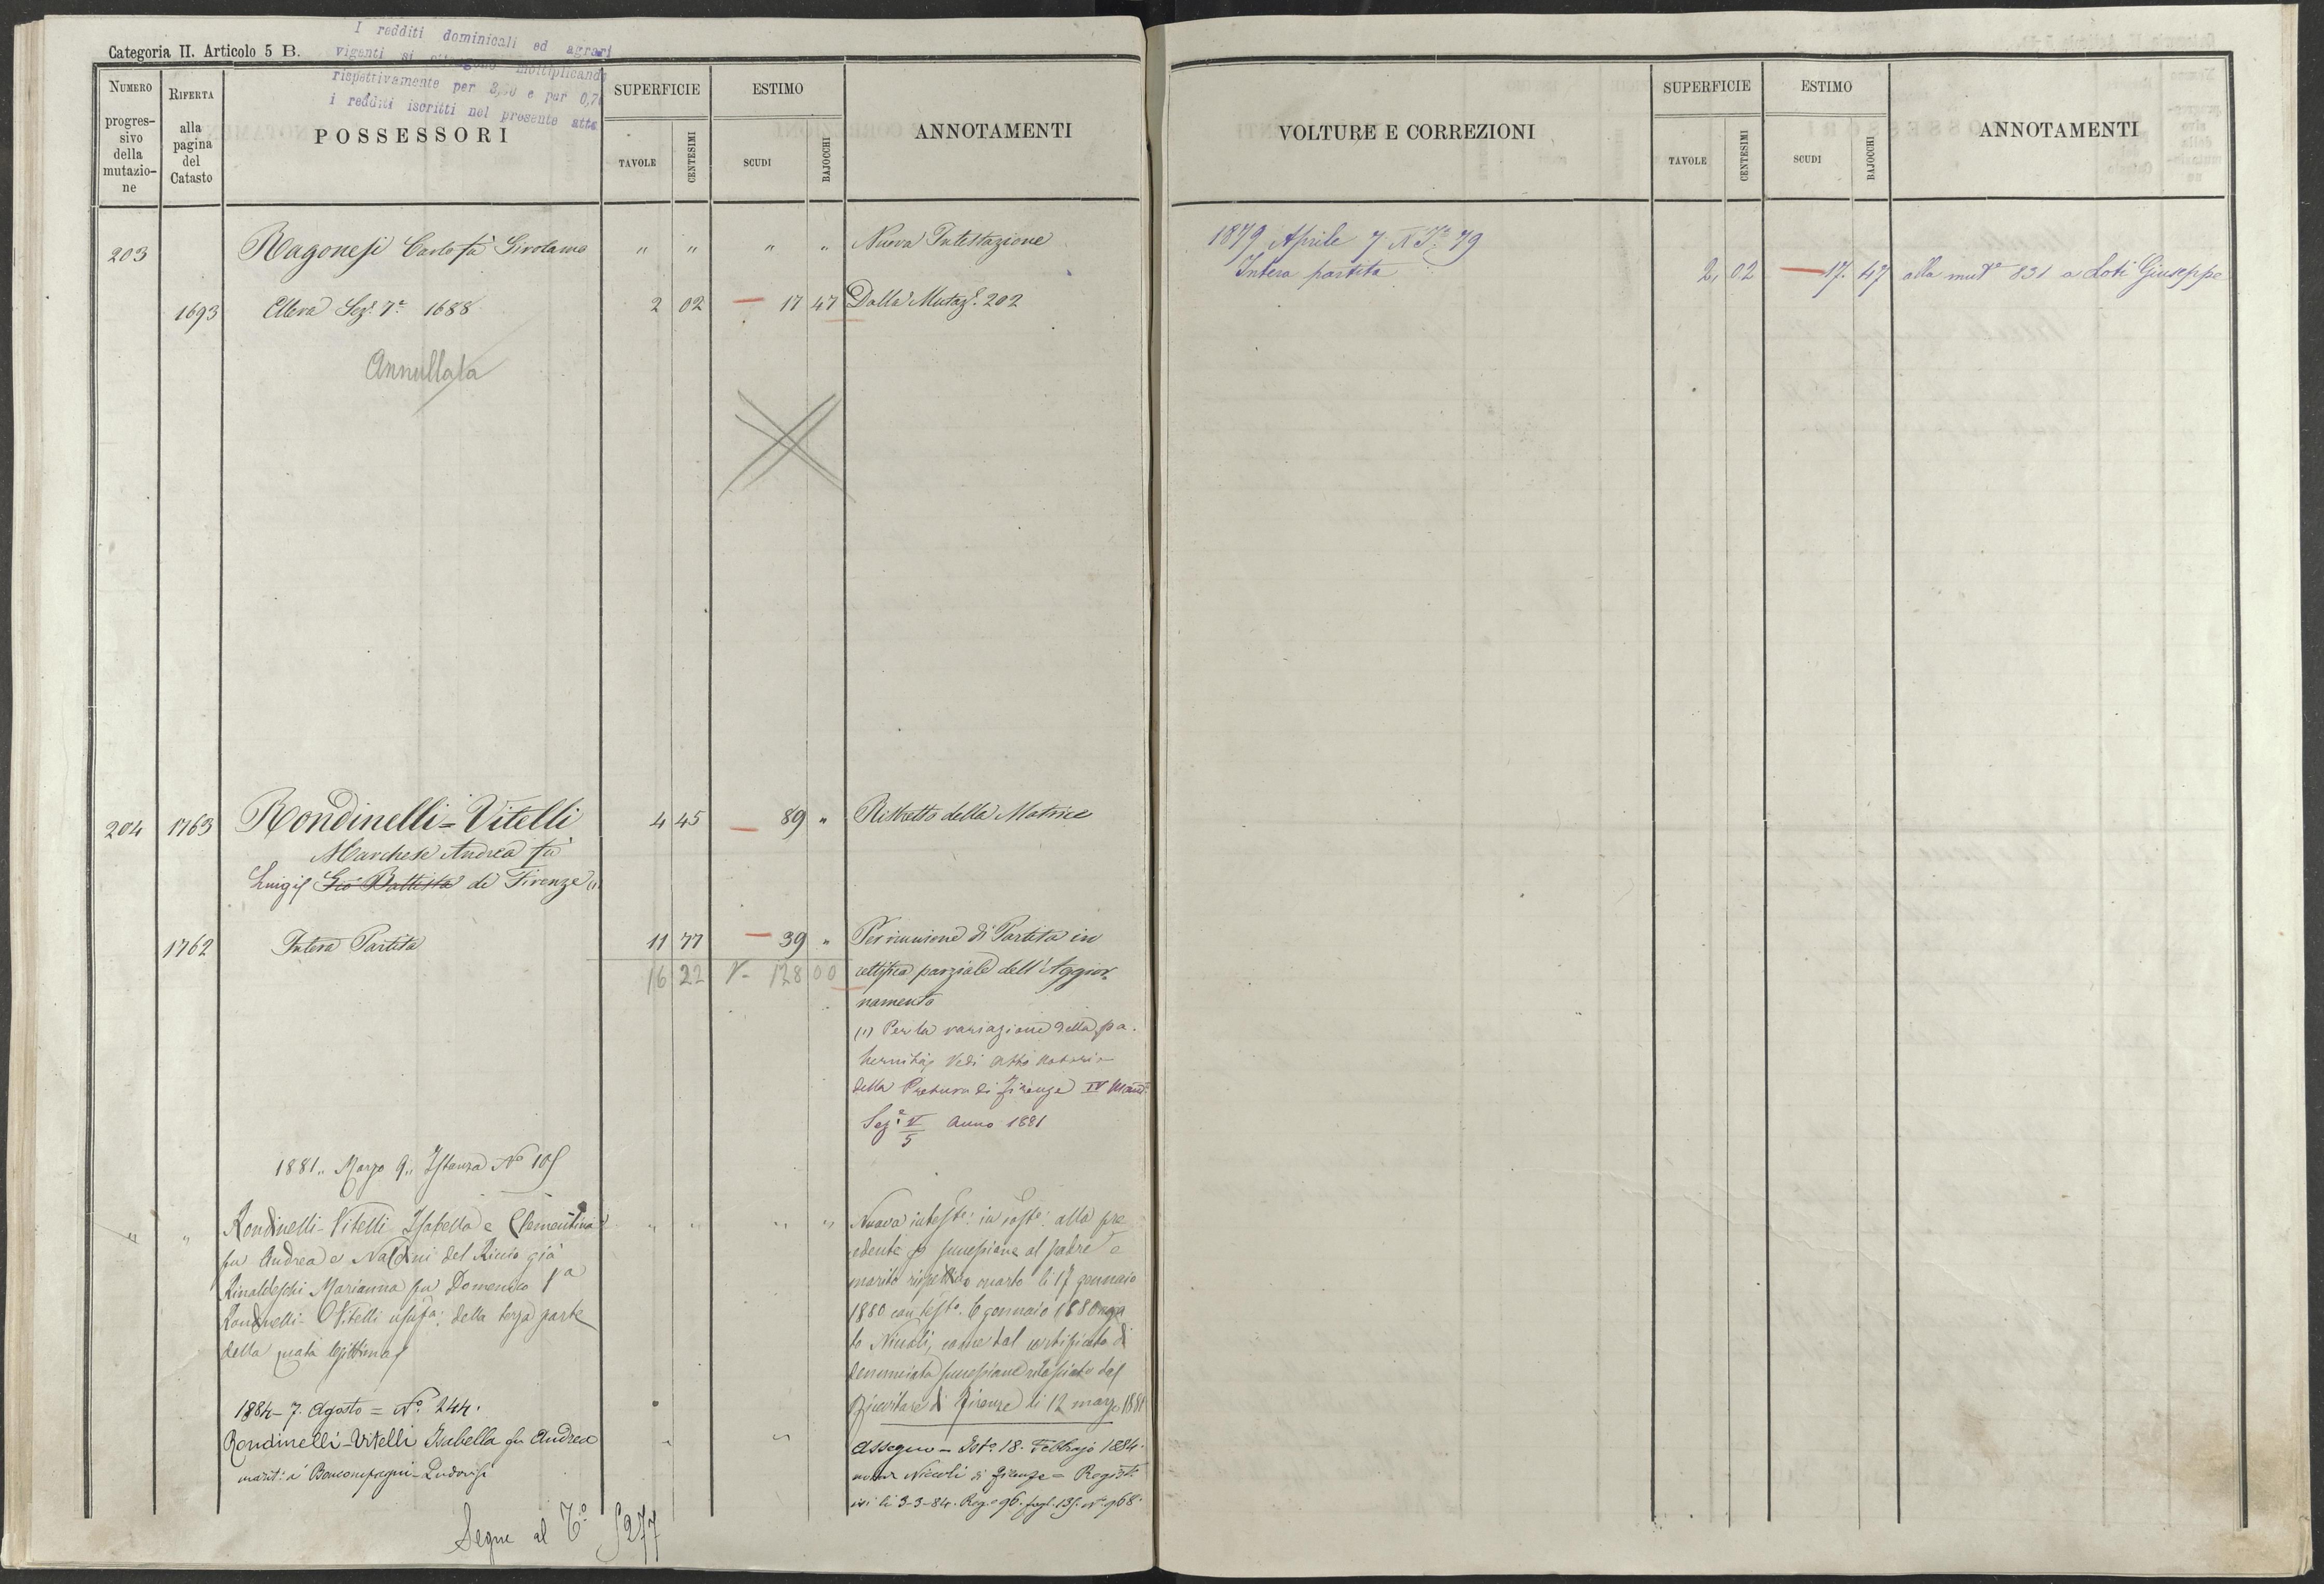 Categoria II. Articolo 5 B.
I redditi dominicali ed agrari
vigenti si ottengono moltiplicando
rispettivamente per 3,50 e per 0,70
i redditi iscritti nel presente atto
NUMERO
progres-
sivo
della
mutazio-
ne
RIFERTA
alla
pagina
del
Catasto
POSSESSORI
SUPERFICIE
TAVOLE
CENTESIMI
ESTIMO
SCUDI
BAJOCCHI
ANNOTAMENTI
203 Ragonesi Carlo fù Girolamo " " " " Nuova Intestazione
1693 Alleva Sez. 7a 1688 2 02 — 17 47 Dalla Mutaz. 202
Annullata
204 1763 Rondinelli=Vitelli 4 45 — 89 " Ristretto della Matrice
Marchese Andrea fù
Luigi Gio Battista di Firenze (1)
1762 Intera Partita 11 77 — 39 " Per riunione di Partita in
16 22 V- 128 00 rettifica parziale dell'Aggior-
namento
(1) Per la variazione della pa-
ternità, Vedi atto notorio
della Pretura di Firenze IV Mand.
Sez.e V/5 Anno 1881
1881,, Marzo 9,, Istanza No 105
" " Rondinelli-Vitelli Isabella e Clementina " " " "
fu Andrea e Naldini del Riccio già
Rinaldeschi Marianna fu Domenico
Rondinelli-Vitelli usufa: della terza parte
della quota legittima
Nuova inteste: in soste: alla pre
cedente p successione al padre e
marito rispettivo morto li 17 gennaio
1880 con testo. 6 gennaio 1880
to Niccoli, come dal certificato di
denunciata successione rilasciato dal
Ricevitore di Firenze li 12 marzo 1881
1884-7. Agosto = No. 244.
Rondinelli-Vitelli Isabella fu Andrea
marit: a Boncompagni-Ludovisi
Assegno - Isto. 18. Febbrajo 1884.
Niccoli di Firenze = Registo.
ivi li 3-3-84. Reg. 96. fogl. 135. No. 968.
Segue al To. 5277
VOLTURE E CORREZIONI
SUPERFICIE
TAVOLE
CENTESIMI
ESTIMO
SCUDI
BAJOCCHI
ANNOTAMENTI
1879 Aprile 7 N. Ia. 79
Intera partita 2, 02 — 17. 47 alla muta 831 a Loti Giuseppe